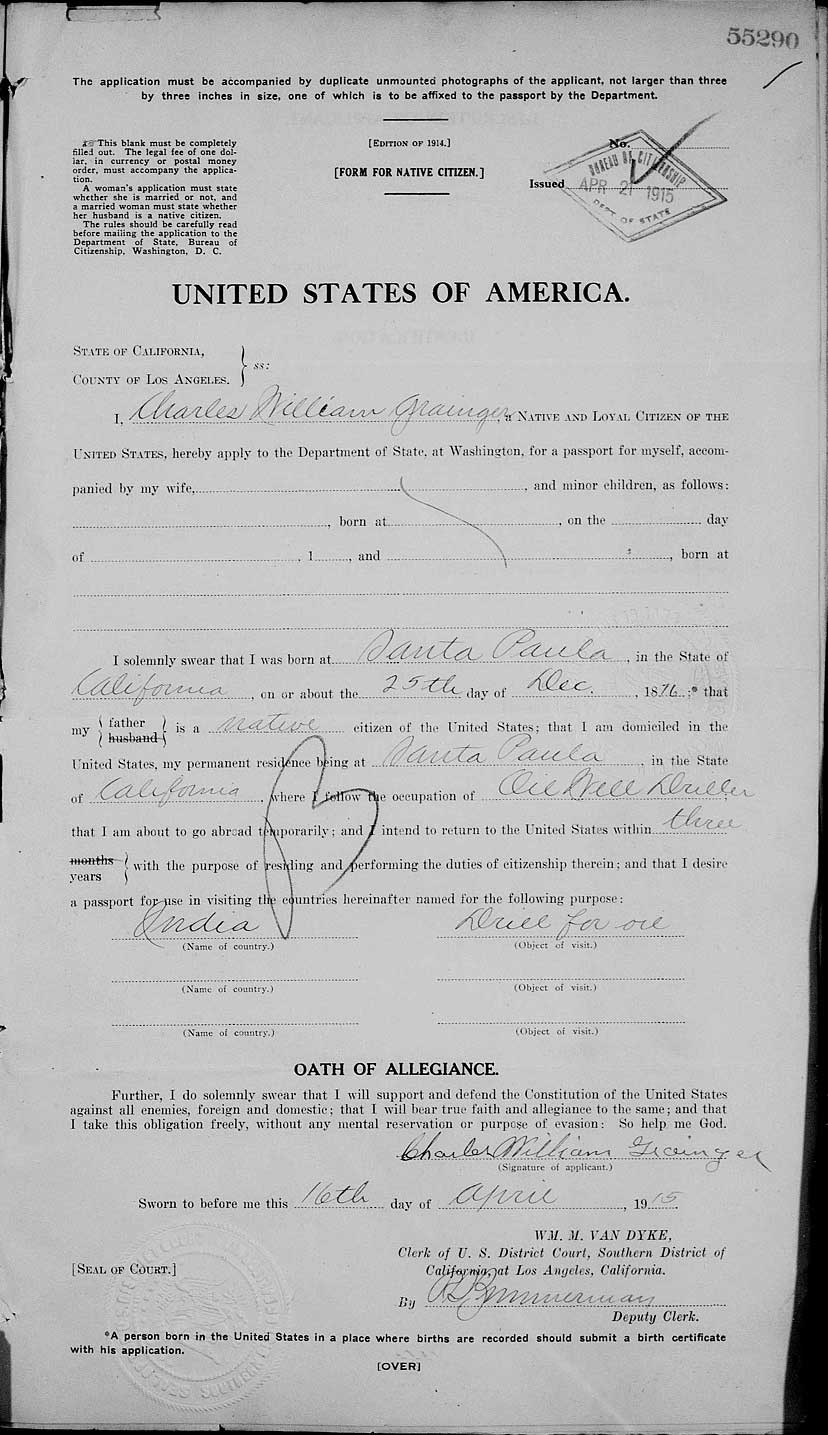 55290
The application must be accompanied by duplicate unmounted photographs of the applicant, not larger than three
by three inches in size, one of which is to be affixed to the passport by the Department.
This blank must be completely
filled out. The legal fee of one dol-
lar, in currency or postal money
order, must accompany the applica-
tion.
A woman's application must state
whether she is married or not, and
a married woman must state whether
her husband is a native citizen.
The rules should be carefully read
before mailing the application to the
Department of State, Bureau of
Citizenship, Washington, D. C.
[EDITION OF 1914.]
[FORM FOR NATIVE CITIZEN.]
No.
Issued
BUREAU OF CITIZENSHIP
APR 21 1915
DEPT OF STATE
UNITED STATES OF AMERICA.
STATE OF CALIFORNIA,
ss:
COUNTY OF LOS ANGELES.
I, Charles William Grainger, a NATIVE AND LOYAL CITIZEN OF THE
UNITED STATES, hereby apply to the Department of State, at Washington, for a passport for myself, accom-
panied by my wife, , and minor children, as follows:
, born at , on the day
of , 1 , and , born at
I solemnly swear that I was born at Santa Paula, in the State of
California, on or about the 25th day of Dec., 1876;* that
my father husband is a native citizen of the United States; that I am domiciled in the
United States, my permanent residence being at Santa Paula, in the State
of California, where I follow the occupation of Oil Well Driller
that I am about to go abroad temporarily; and I intend to return to the United States within three
months years with the purpose of residing and performing the duties of citizenship therein; and that I desire
a passport for use in visiting the countries hereinafter named for the following purpose:
India Drill for oil
(Name of country.) (Object of visit.)
(Name of country.) (Object of visit.)
(Name of country.) (Object of visit.)
OATH OF ALLEGIANCE.
Further, I do solemnly swear that I will support and defend the Constitution of the United States
against all enemies, foreign and domestic; that I will bear true faith and allegiance to the same; and that
I take this obligation freely, without any mental reservation or purpose of evasion: So help me God.
Charles William Grainger
(Signature of applicant.)
Sworn to before me this 16th day of April, 1915.
WM. M. VAN DYKE,
Clerk of U. S. District Court, Southern District of
California, at Los Angeles, California.
[SEAL OF COURT.]
By Zimmerman
Deputy Clerk.
*A person born in the United States in a place where births are recorded should submit a birth certificate
with his application.
[OVER]